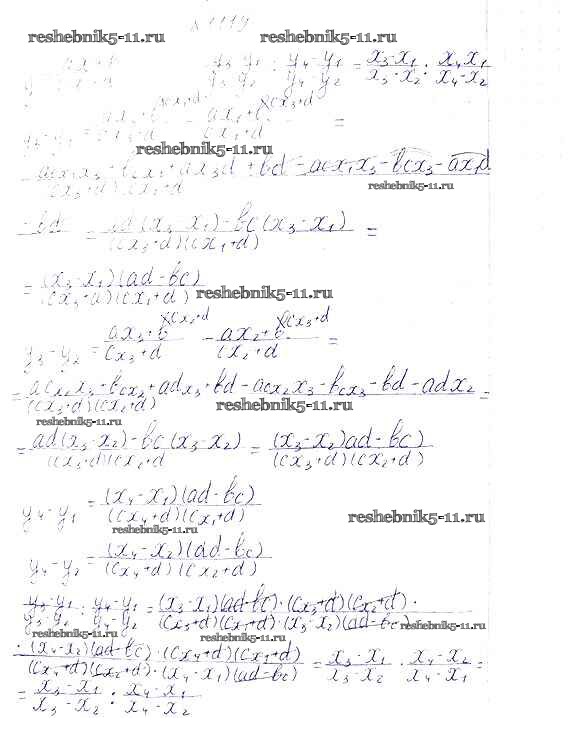 N 1119
reshebnik5-11.ru reshebnik5-11.ru
(y₃-y₁)/(y₃-y₂) : (y₄-y₁)/(y₄-y₂) = (x₃-x₁)/(x₃-x₂) : (x₄x₁)/(x₄-x₂)
y₃-y₁ = (ax₃+b)/(cx₃+d) - (ax₁+b)/(cx₁+d) =
reshebnik5-11.ru
acx₁x₃+bcx₁+ax₃d+bd-acx₁x₃-bcx₃-ax₁d
(cx₃+d)(cx₁+d)
reshebnik5-11.ru
-bd = (ad(x₃-x₁)-bc(x₃-x₁))/((cx₃+d)(cx₁+d)) =
= ((x₃-x₁)(ad-bc))/((cx₃+d)(cx₁+d))
reshebnik5-11.ru
y₃-y₂ = (ax₃+b)/(cx₃+d) - (ax₂+b)/(cx₂+d) =
= (acx₂x₃+bcx₂+adx₃+bd-acx₂x₃-bcx₃-bd-adx₂)/((cx₃+d)(cx₂+d)) =
reshebnik5-11.ru
reshebnik5-11.ru
= (ad(x₃-x₂)-bc(x₃-x₂))/((cx₃+d)(cx₂+d) = ((x₃-x₂)ad-bc))/((cx₃+d)(cx₂+d))
y₄-y₁ = ((x₄-x₁)(ad-bc))/((cx₄+d)(cx₁+d))
reshebnik5-11.ru
reshebnik5-11.ru
y₄-y₂ = ((x₄-x₂)(ad-bc))/((cx₄+d)(cx₂+d))
(y₃-y₁)/(y₃-y₂) : (y₄-y₁)/(y₄-y₂) = ((x₃-x₁)(ad-bc)·(cx₃+d)(cx₂+d))/((cx₃+d)(cx₁+d)·(x₃-x₂)(ad-bc)) ·
reshebnik5-11.ru reshebnik5-11.ru reshebnik5-11.ru
· ((x₄-x₂)(ad-bc)·(cx₄+d)(cx₁+d))/((cx₄+d)(cx₂+d)·(x₄-x₁)(ad-bc)) = (x₃-x₁)/(x₃-x₂) · (x₄-x₂)/(x₄-x₁) =
= (x₃-x₁)/(x₃-x₂) : (x₄-x₁)/(x₄-x₂)